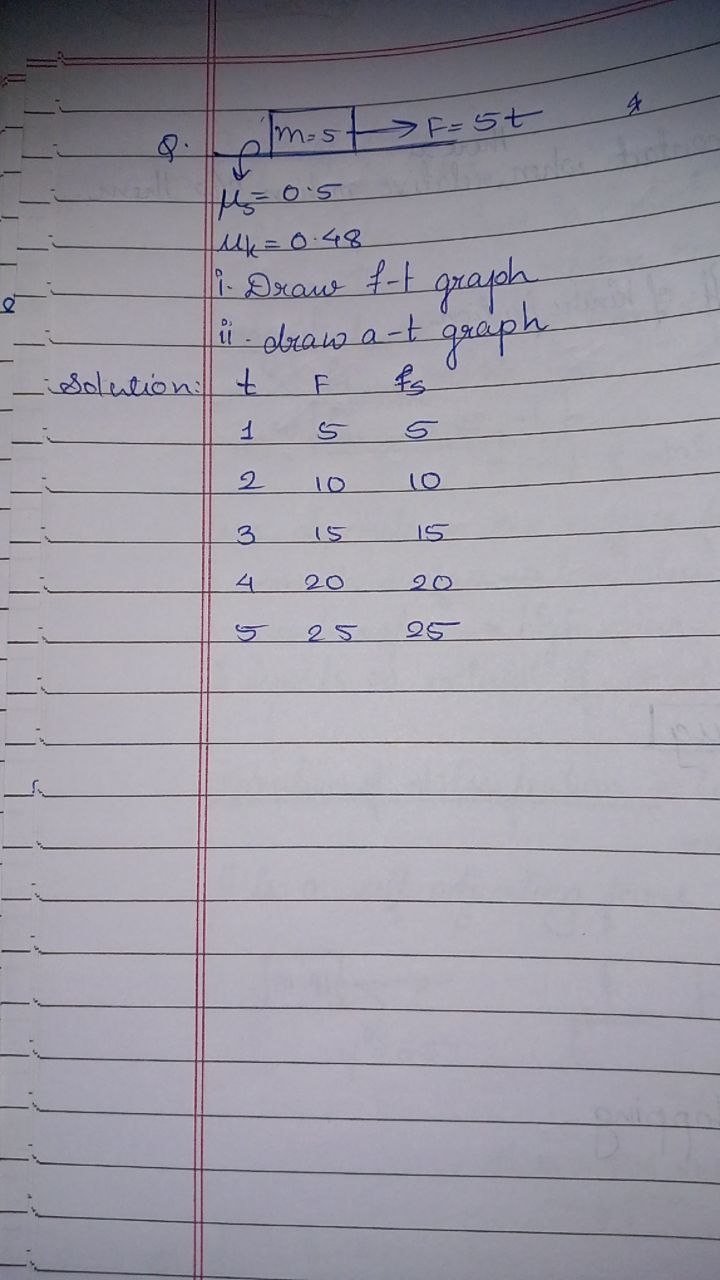 Q. m=5 → F=5t
μs=0.5
μk=0.48
i. Draw f-t graph
ii. draw a-t graph
Solution: t F fs
1 5 5
2 10 10
3 15 15
4 20 20
5 25 25